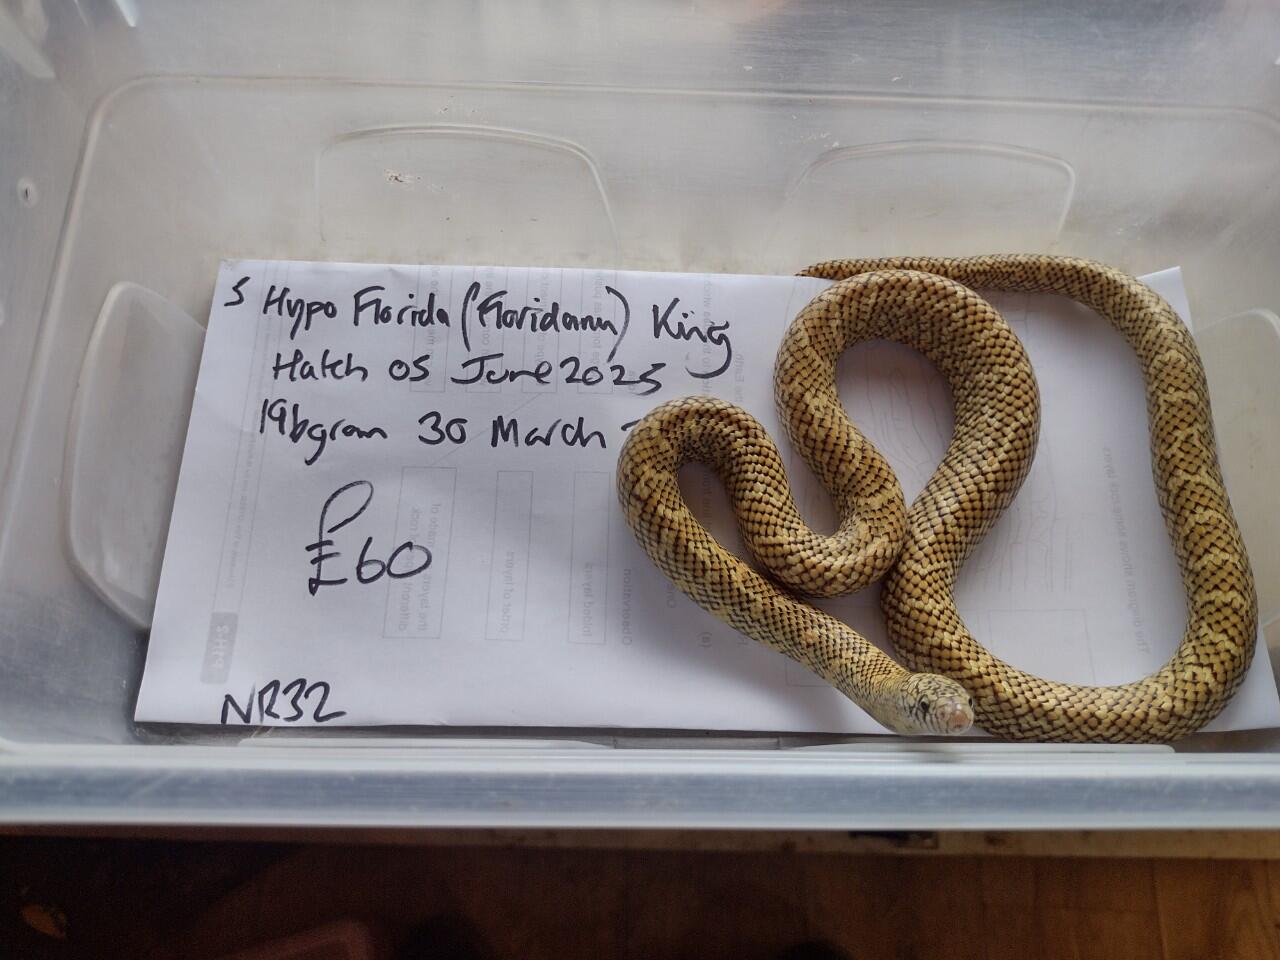 5 Hypo Florida (Floridana) King
Hatch 05 June 2025
196gram 30 March
£60
NR32